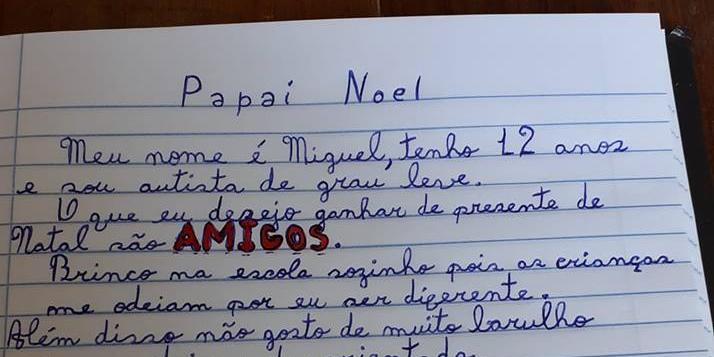 Papai Noel
Meu nome é Miguel, tenho 12 anos
e sou autista de grau leve.
O que eu desejo ganhar de presente de
Natal são AMIGOS.
Brinco na escola sozinho pois as crianças
me odeiam por eu ser diferente.
Além disso não gosto de muito barulho